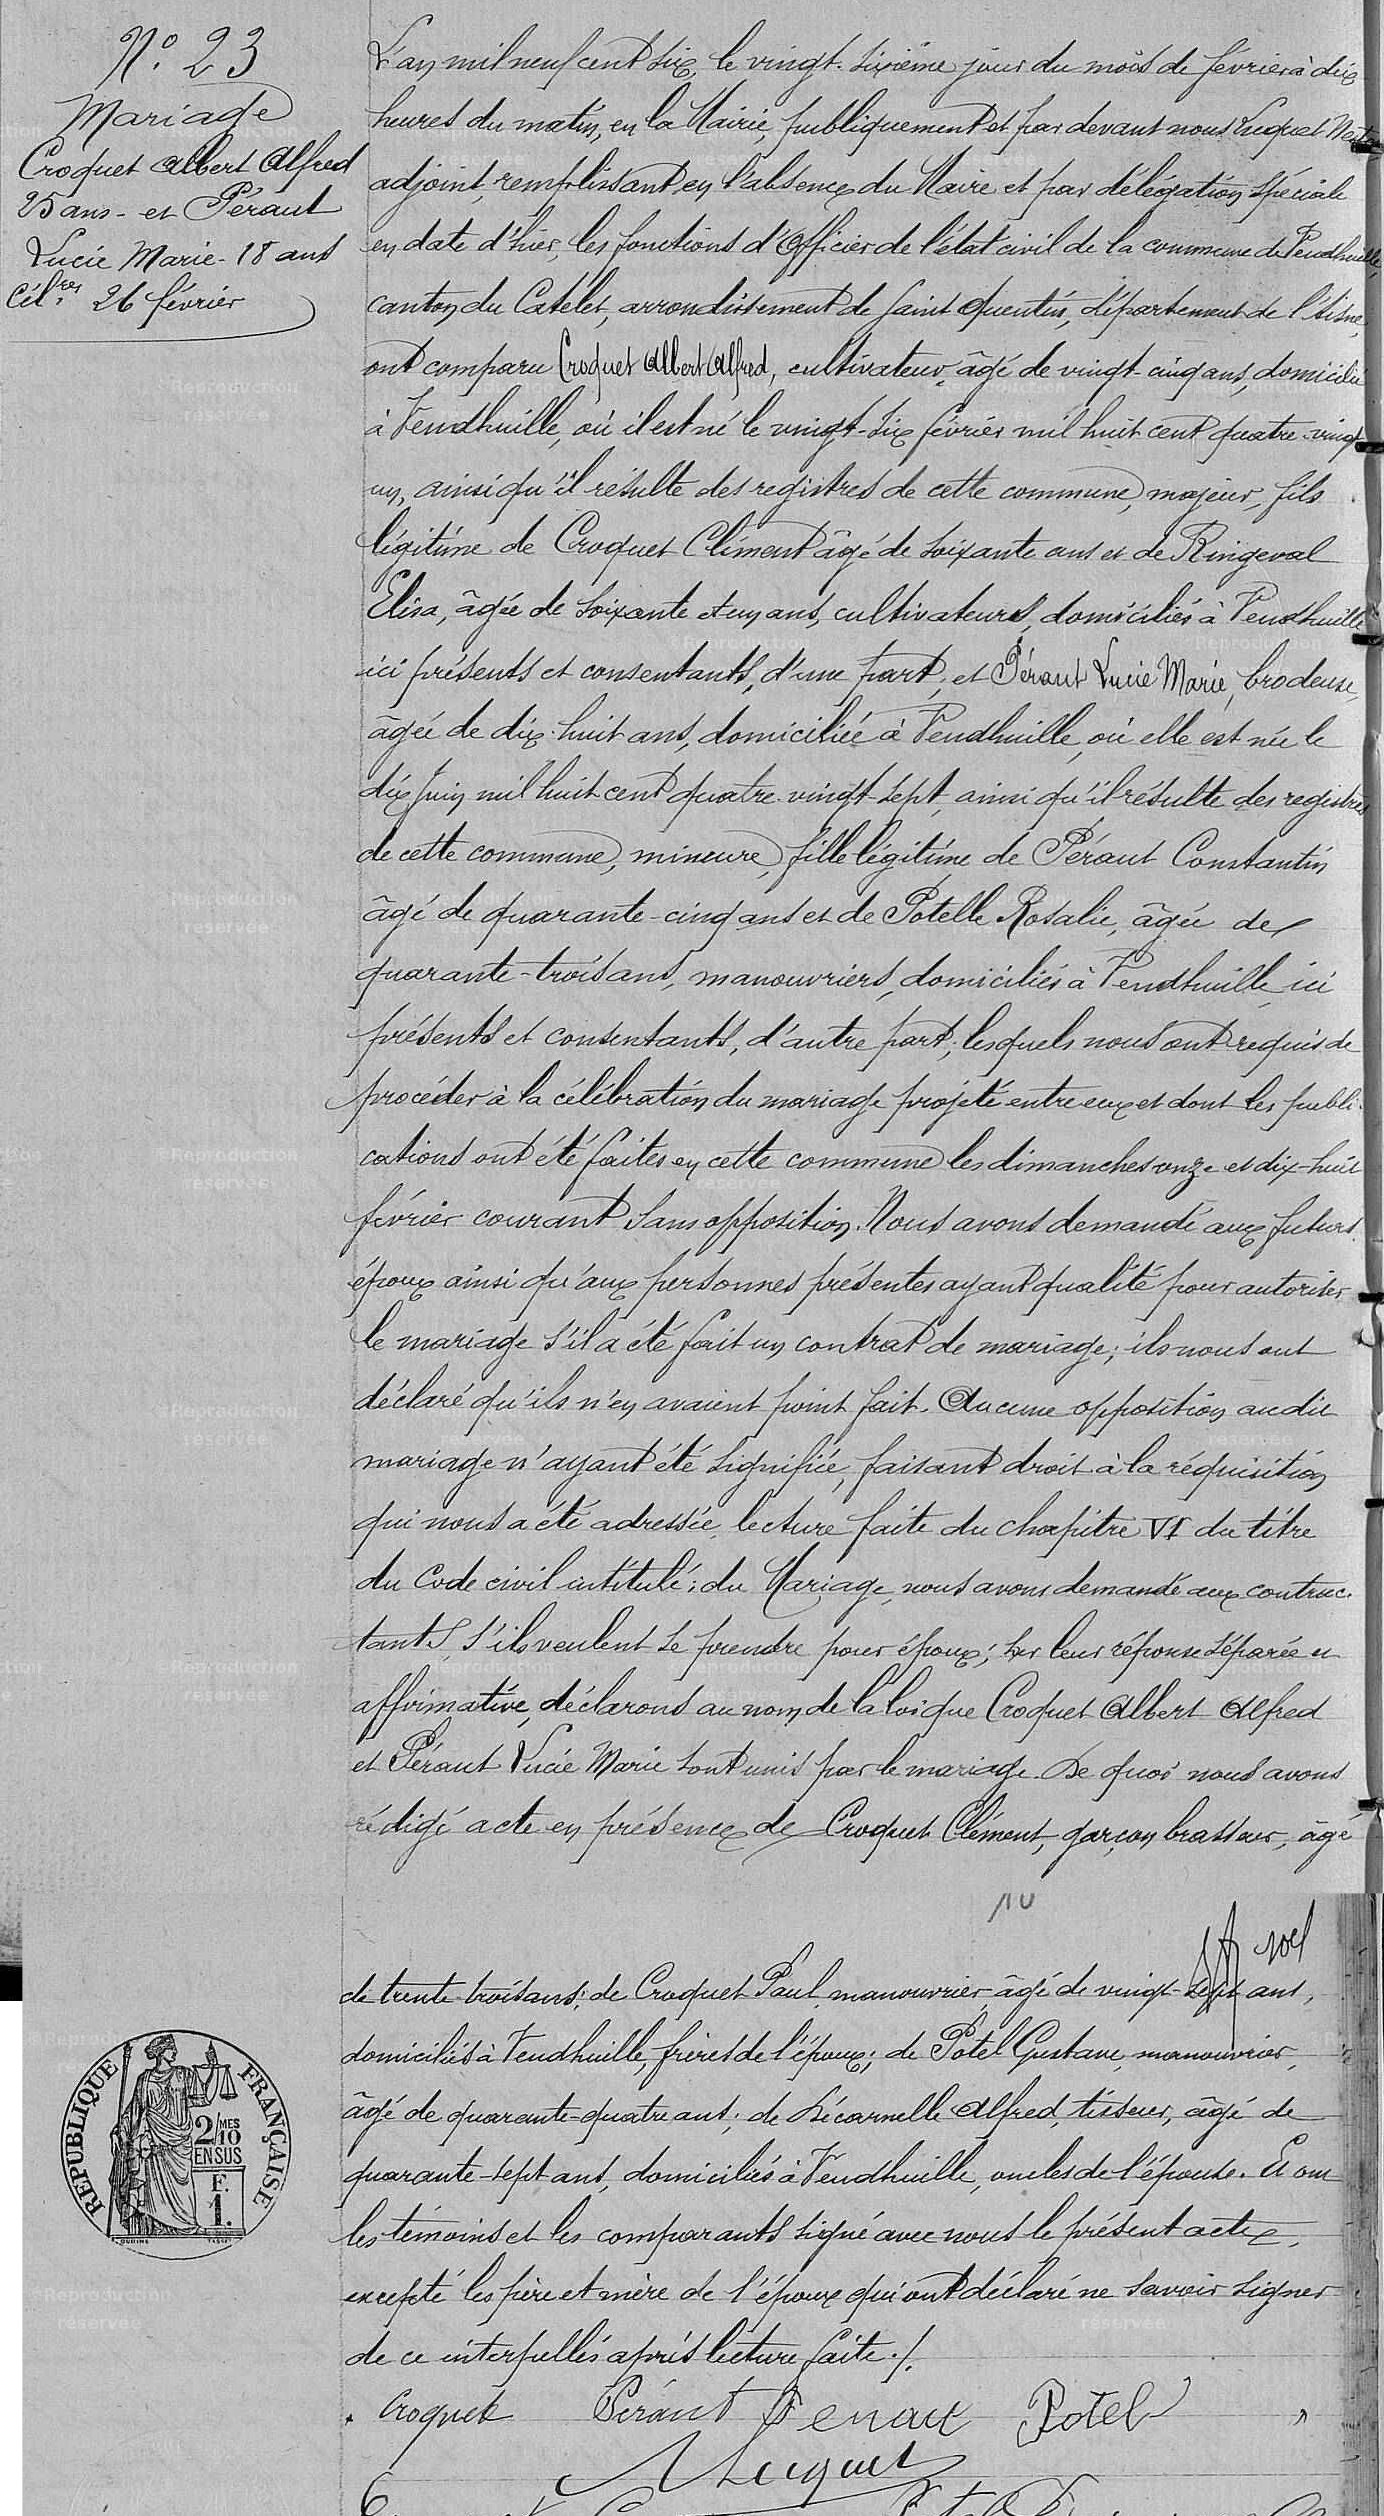 N° 23
Mariage
Croquet Albert Alfred
25 ans - et Péraut
Lucie Marie - 18 ans
Cél.res 26 février
L'an mil neuf cent six, le vingt-sixième jour du mois de février à dix
heures du matin, en la Mairie, publiquement et par devant nous Luguet
adjoint, remplissant en l'absence du Maire et par délégation spéciale
en date d'hier, les fonctions d'Officier de l'état civil de la commune de Vendhuille,
canton du Catelet, arrondissement de Saint Quentin, département de l'Aisne,
ont comparu Croquet Albert Alfred, cultivateur, âgé de vingt-cinq ans, domicilié
à Vendhuille, où il est né le vingt-six février mil huit cent quatre-vingt
un, ainsi qu'il résulte des registres de cette commune, majeur, fils
légitime de Croquet Clément âgé de soixante ans et de Ringeval
Elisa, âgée de soixante et un ans, cultivateurs, domiciliés à Vendhuille
ici présents et consentants, d'une part; et Péraut Lucie Marie, brodeuse,
âgée de dix-huit ans, domiciliée à Vendhuille, où elle est née le
dix juin mil huit cent quatre-vingt-sept, ainsi qu'il résulte des registres
de cette commune, mineure, fille légitime de Péraut Constantin
âgé de quarante-cinq ans et de Potelle Rosalie, âgée de
quarante-trois ans, manouvriers, domiciliés à Vendhuille, ici
présents et consentants, d'autre part; lesquels nous ont requis de
procéder à la célébration du mariage projeté entre eux et dont les publi-
cations ont été faites en cette commune les dimanches onze et dix-huit
février courant sans opposition. Nous avons demandé aux futurs
époux ainsi qu'aux personnes présentes ayant qualité pour autoriser
le mariage s'il a été fait un contrat de mariage; ils nous ont
déclaré qu'ils n'en avaient point fait. Aucune opposition audit
mariage n'ayant été signifiée, faisant droit à la réquisition
qui nous a été adressée, lecture faite du chapitre VI du titre
du Code civil intitulé: du Mariage, nous avons demandé aux contrac-
tants, s'ils veulent se prendre pour époux; sur leur réponse séparée et
affirmative, déclarons au nom de la loi que Croquet Albert Alfred
et Péraut Lucie Marie sont unis par le mariage. De quoi nous avons
rédigé acte en présence de Croquet Clément, garçon brasseur, âgé
10
de trente-trois ans; de Croquet Paul, manouvrier, âgé de vingt-sept ans,
domiciliés à Vendhuille, frères de l'époux; de Potel Gustave, manouvrier,
âgé de quarante-quatre ans; de Lécarnelle Alfred, tisseur, âgé de
quarante-sept ans, domiciliés à Vendhuille, oncles de l'épouse. Et ont
les témoins et les comparants signé avec nous le présent acte,
excepté les père et mère de l'époux qui ont déclaré ne savoir signer
de ce interpellés après lecture faite ./.
Croquet Péraut Potel
RÉPUBLIQUE FRANÇAISE
2/10 MES
EN SUS
F.
1.
©Reproduction
reservée